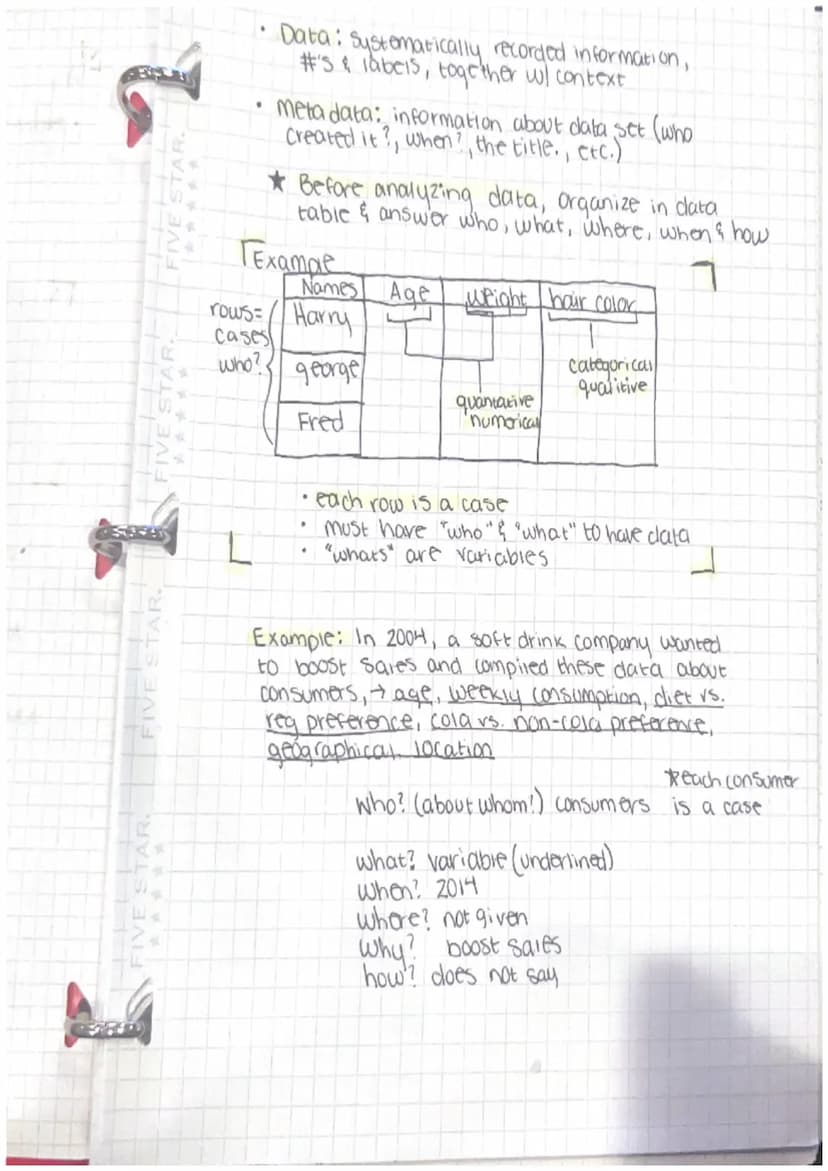 • Data: systematically recorded information,
#'s & labels, together w/ context
• metadata: information about data set (who
created it?, when?, the title., etc.)
★ Before analyzing data, organize in data
table & answer who, what, where, when & how
Example
Names Age weight hair color
rows=
cases
who?
Harry
george
Fred
quantative
numerical
categorical
qualitive
• each row is a case
• must have "who" & "what" to have data
• "whats" are variables
Example: In 2004, a soft drink company wanted
to boost sales and compiled these data about
consumers, → age, weekly consumption, diet vs.
reg preference, cola vs. non-cola preference,
geographical location
*each consumer
is a case
Who? (about whom!) consumers
what? variable (underlined)
when? 2014
where? not given
why? boost sales
how? does not say
FIVE STAR.
FIVE STAR.
FIVE STAR.
FIVE STAR.